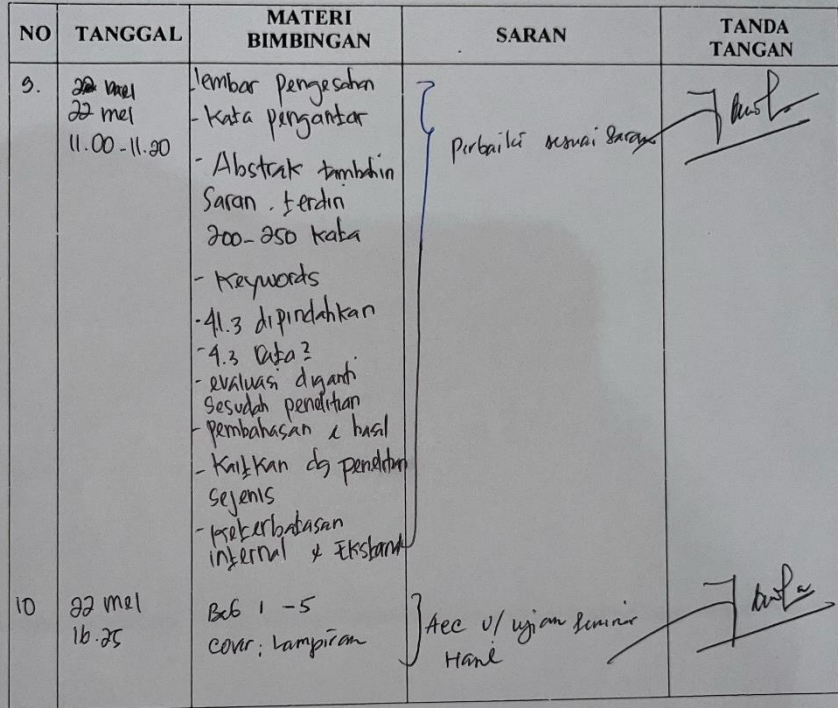 NO TANGGAL MATERI BIMBINGAN SARAN TANDA TANGAN
9.
22 mei
11.00-11.20
- lembar pengesahan
- Kata pengantar
- Abstrak tambahin
Saran. terdiri
200-250 kata
- Keywords
- 4.1.3 dipindahkan
- 4.3 Data?
- evaluasi diganti
sesudah penelitian
- pembahasan & hasil
- Kaitkan dg penelitian
sejenis
- keterbatasan
internal & Ekstand
Perbaiki sesuai Saran
10
22 mei
16.25
Bab 1 - 5
cover; Lampiran
Acc u/ ujian seminar
Hasil